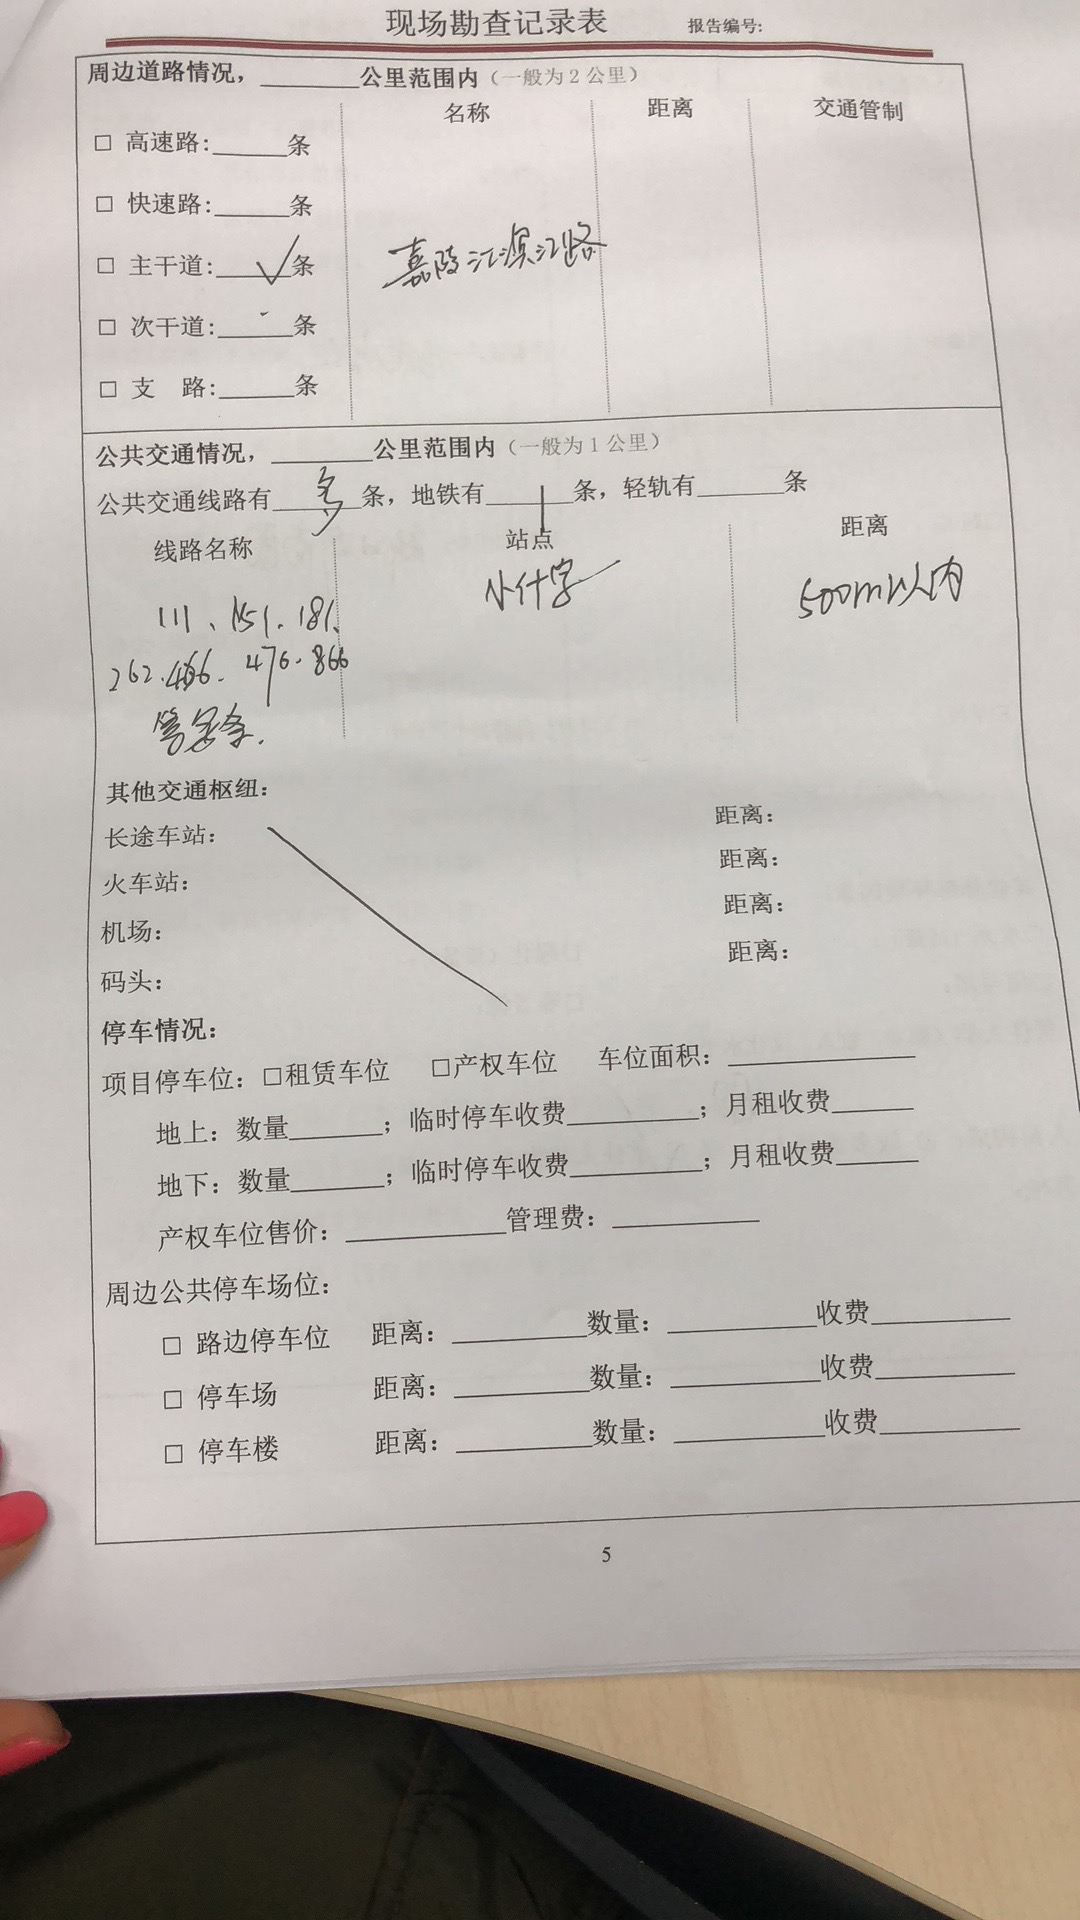 现场勘查记录表 报告编号:
周边道路情况，________公里范围内（一般为2公里）
名称 距离 交通管制
□ 高速路:______条
□ 快速路:______条
□ 主干道:___✓___条 嘉陵江滨江路
□ 次干道:______条
□ 支 路:______条
公共交通情况，________公里范围内（一般为1公里）
公共交通线路有___多___条，地铁有___1___条，轻轨有_______条
线路名称 站点 距离
111、151.181、 小什字 500m以内
262.466.476.866
等多条.
其他交通枢纽：
长途车站： 距离：
火车站： 距离：
机场： 距离：
码头： 距离：
停车情况：
项目停车位：□租赁车位 □产权车位 车位面积：______________
地上：数量_______；临时停车收费__________；月租收费______
地下：数量_______；临时停车收费__________；月租收费______
产权车位售价：____________管理费：___________
周边公共停车场位：
□ 路边停车位 距离：__________数量：___________收费__________
□ 停车场 距离：__________数量：___________收费__________
□ 停车楼 距离：__________数量：___________收费__________
5